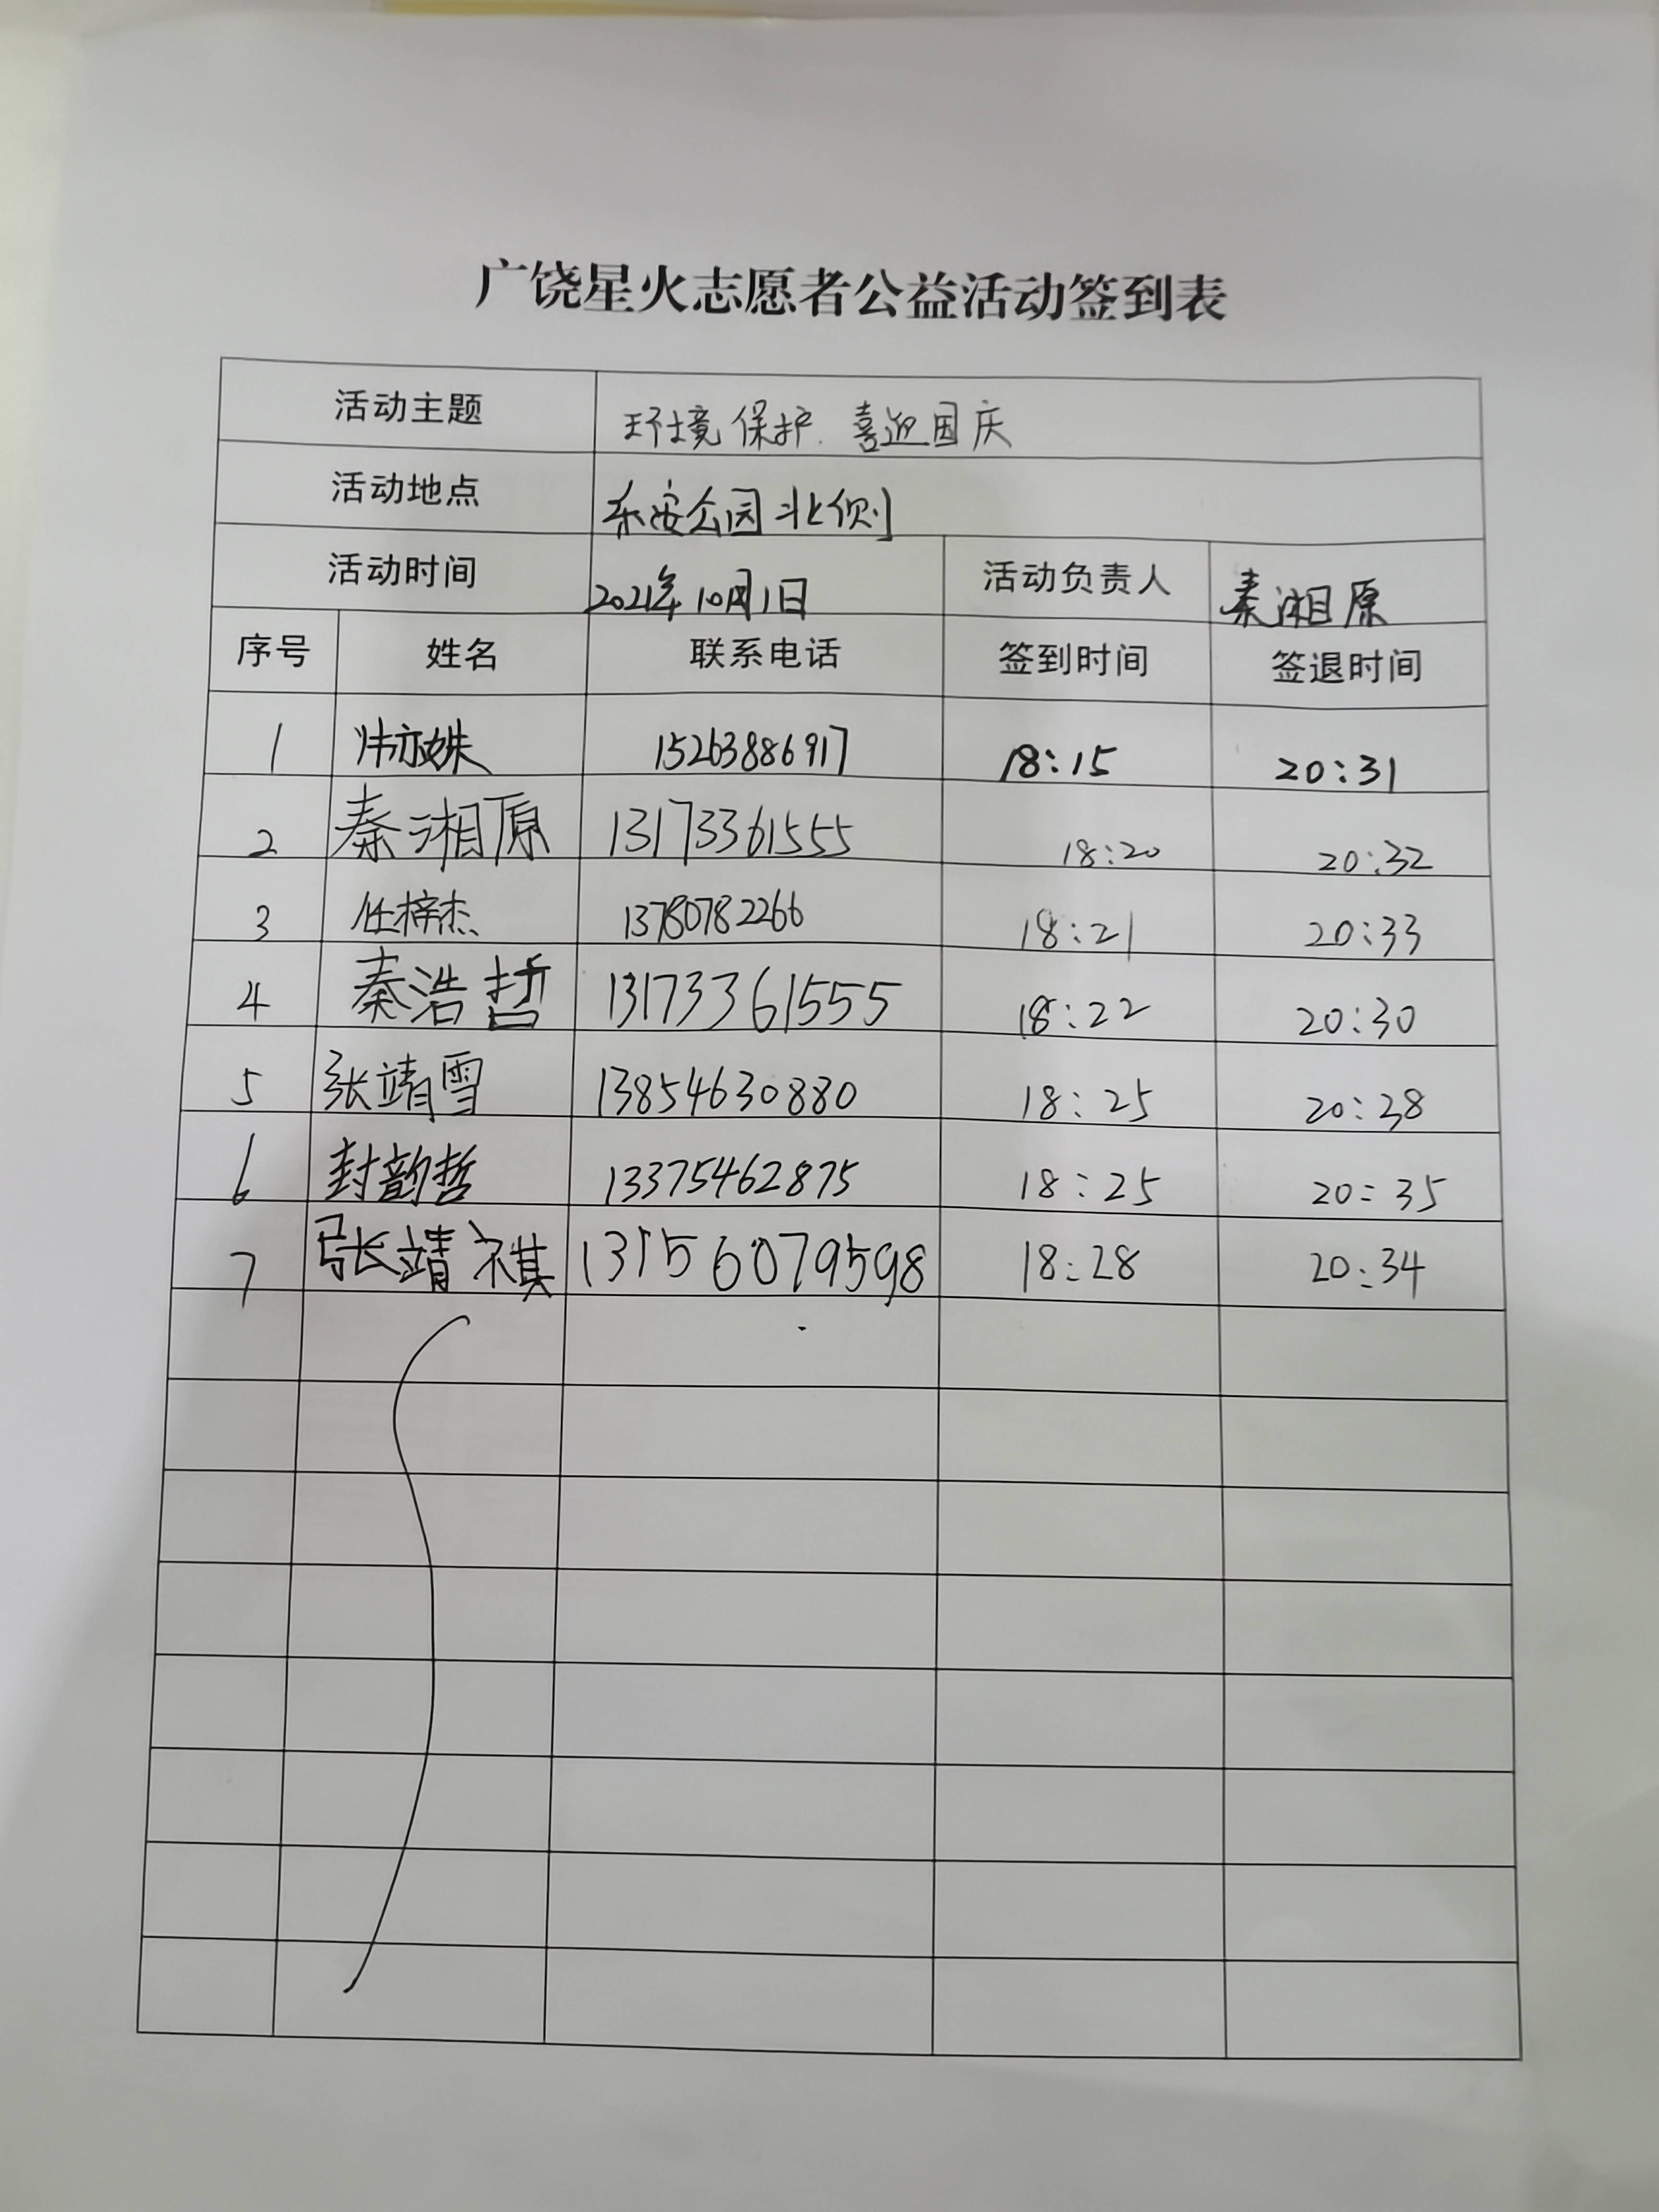 广饶星火志愿者公益活动签到表
活动主题 环境保护.喜迎国庆
活动地点 乐安公园北侧
活动时间 2021年10月1日 活动负责人 秦湘原
序号 姓名 联系电话 签到时间 签退时间
1 15263886917 18:15 20:31
2 秦湘原 13173361555 18:20 20:32
3 任梓杰 13780782266 18:21 20:33
4 秦浩哲 13173361555 18:22 20:30
5 张靖雪 13854630880 18:25 20:38
6 封韵哲 13375462875 18:25 20:35
7 张靖祺 13156079598 18:28 20:34